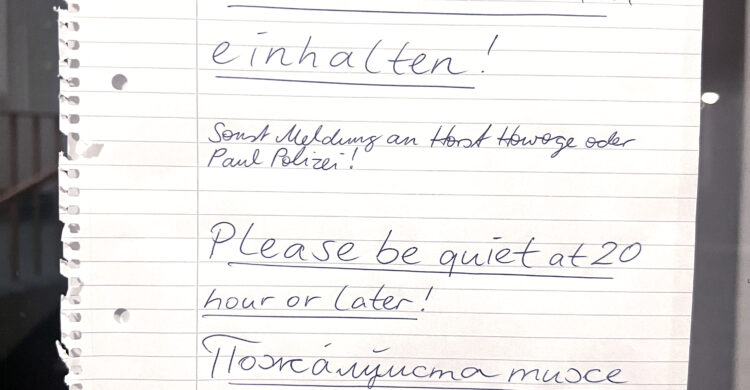 einhalten!
Sonst Meldung an Horst Howoge oder
Paul Polizei!
Please be quiet at 20
hour or later!
Пожалуйста тихе